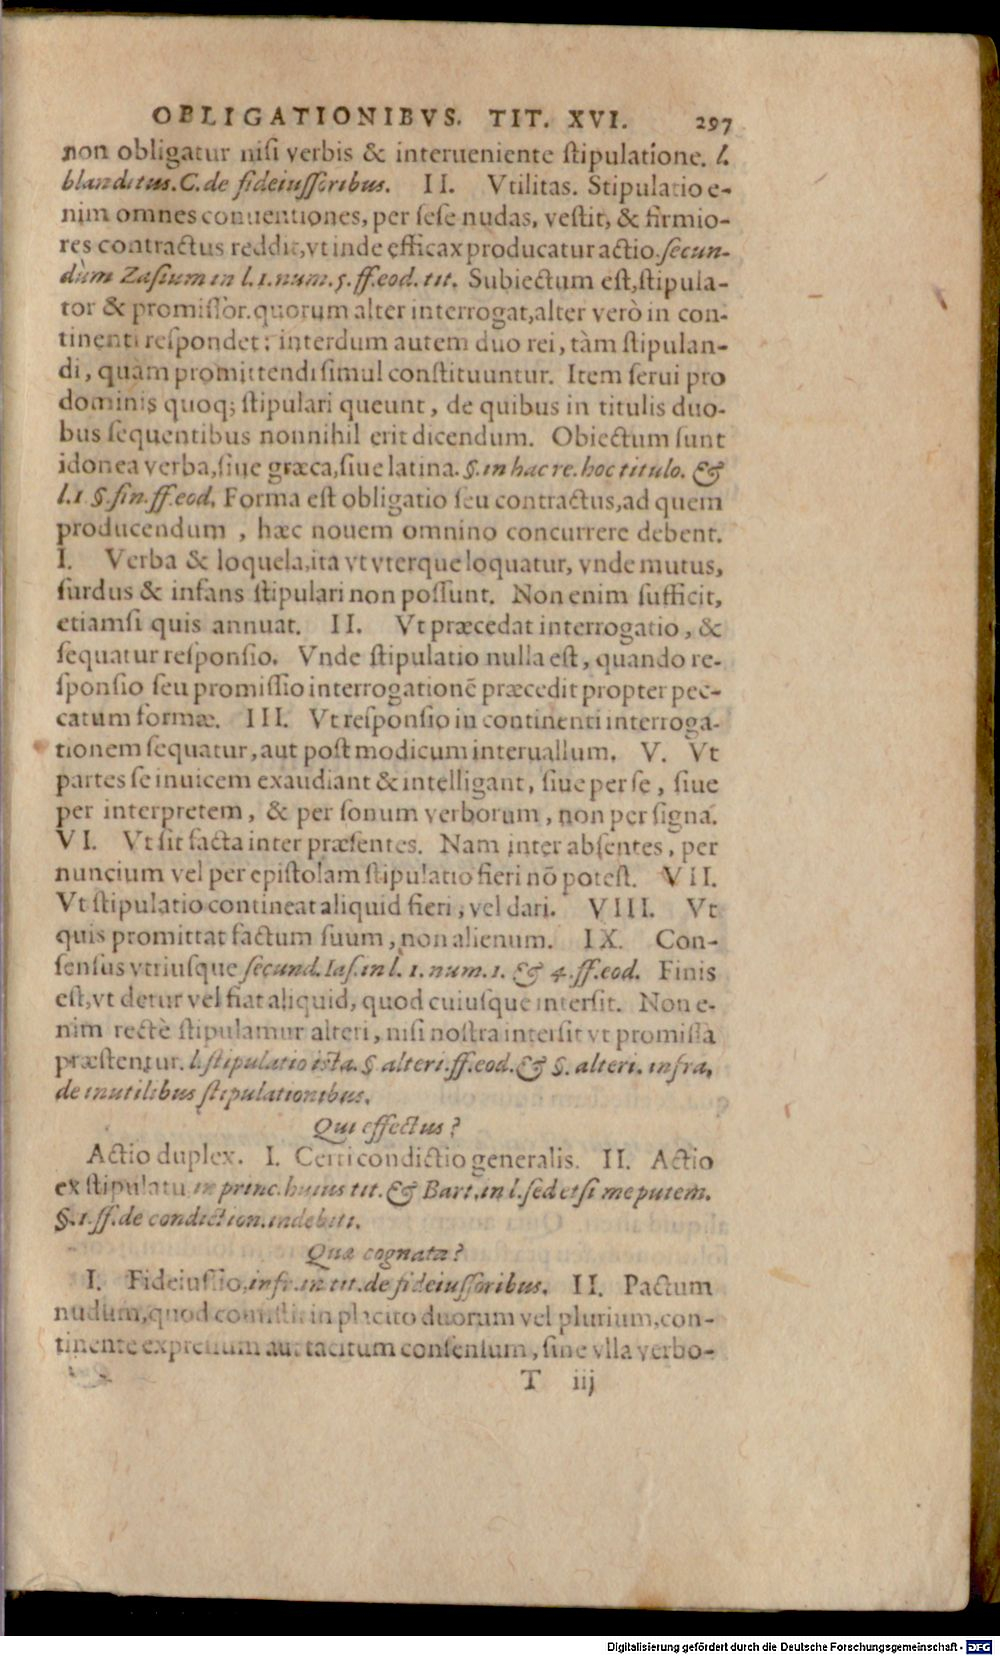 OBLIGATIONIBVS. TIT. XVI. 297
non obligatur nisi verbis & interueniente stipulatione. l.
blanditus. C. de fideiussoribus. II. Vtilitas. Stipulatio e-
nim omnes conuentiones, per sese nudas, vestit, & firmio-
res contractus reddit, vt inde efficax producatur actio. secun-
dùm Zasium in l. 1. num. 5. ff. eod. tit. Subiectum est, stipula-
tor & promissor. quorum alter interrogat, alter verò in con-
tinenti respondet: interdum autem duo rei, tàm stipulan-
di, quàm promittendi simul constituuntur. Item serui pro
dominis quoq; stipulari queunt, de quibus in titulis duo-
bus sequentibus nonnihil erit dicendum. Obiectum sunt
idonea verba, siue græca, siue latina. §. in hac re. hoc titulo. &
l. 1 §. fin. ff. eod. Forma est obligatio seu contractus, ad quem
producendum , hæc nouem omnino concurrere debent.
I. Verba & loquela, ita vt vterque loquatur, vnde mutus,
surdus & infans stipulari non possunt. Non enim sufficit,
etiamsi quis annuat. II. Vt præcedat interrogatio, &
sequatur responsio. Vnde stipulatio nulla est, quando re-
sponsio seu promissio interrogationē præcedit propter pec-
catum formæ. III. Vt responsio in continenti interroga-
tionem sequatur, aut post modicum interuallum. V. Vt
partes se inuicem exaudiant & intelligant, siue per se, siue
per interpretem, & per sonum verborum, non per signa.
VI. Vt sit facta inter præsentes. Nam inter absentes, per
nuncium vel per epistolam stipulatio fieri nō potest. VII.
Vt stipulatio contineat aliquid fieri, vel dari. VIII. Vt
quis promittat factum suum, non alienum. IX. Con-
sensus vtriusque secund. Ias. in l. 1. num. 1. & 4. ff. eod. Finis
est, vt detur vel fiat aliquid, quod cuiusque intersit. Non e-
nim rectè stipulamur alteri, nisi nostra intersit vt promissa
præstentur. l. stipulatio ista. § alteri. ff. eod. & §. alteri. infra,
de inutilibus stipulationibus.
Qui effectus?
Actio duplex. I. Certi condictio generalis. II. Actio
ex stipulatu in princ. huius tit. & Bart. in l. sed etsi me putem.
§. 1. ff. de condiction. indebiti.
Quæ cognata?
I. Fideiussio, infr. in tit. de fideiussoribus. II. Pactum
nudum, quod consistit in placito duorum vel plurium, con-
tinente expressum aut tacitum consensum, sine vlla verbo-
T iij
Digitalisierung gefördert durch die Deutsche Forschungsgemeinschaft - DFG